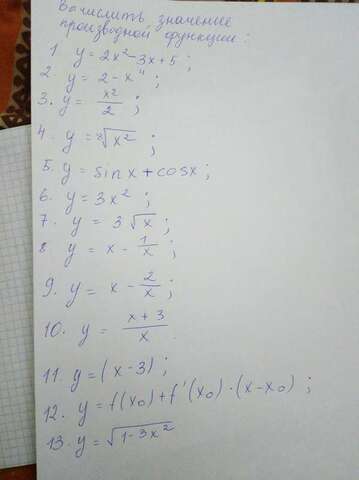 Вычислить значение
производной функции:
1. y = 2x² - 3x + 5 ;
2. y = 2 - x⁴ ;
3. y = x²/2 ;
4. y = ³√x² ;
5. y = sin x + cos x ;
6. y = 3x² ;
7. y = 3√x ;
8 y = x - 1/x ;
9. y = x - 2/x ;
10. y = x + 3/x .
11. y = (x - 3) ;
12. y = f(x₀) + f'(x₀) · (x - x₀) ;
13. y = √1 - 3x²